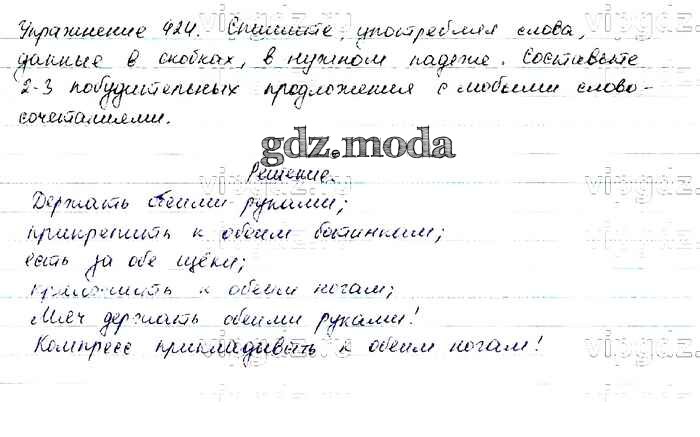 Упражнение 424. Спишите, употребляя слова,
данные в скобках, в нужном падеже. Составьте
2-3 побудительных предложения с любыми слово-
сочетаниями.
gdz.moda
Решение.
Держать обеими руками;
прикрепить к обеим ботинкам;
есть за обе щёки;
приложить к обеим ногам;
Мяч держать обеими руками!
Компресс прикладывать к обеим ногам!